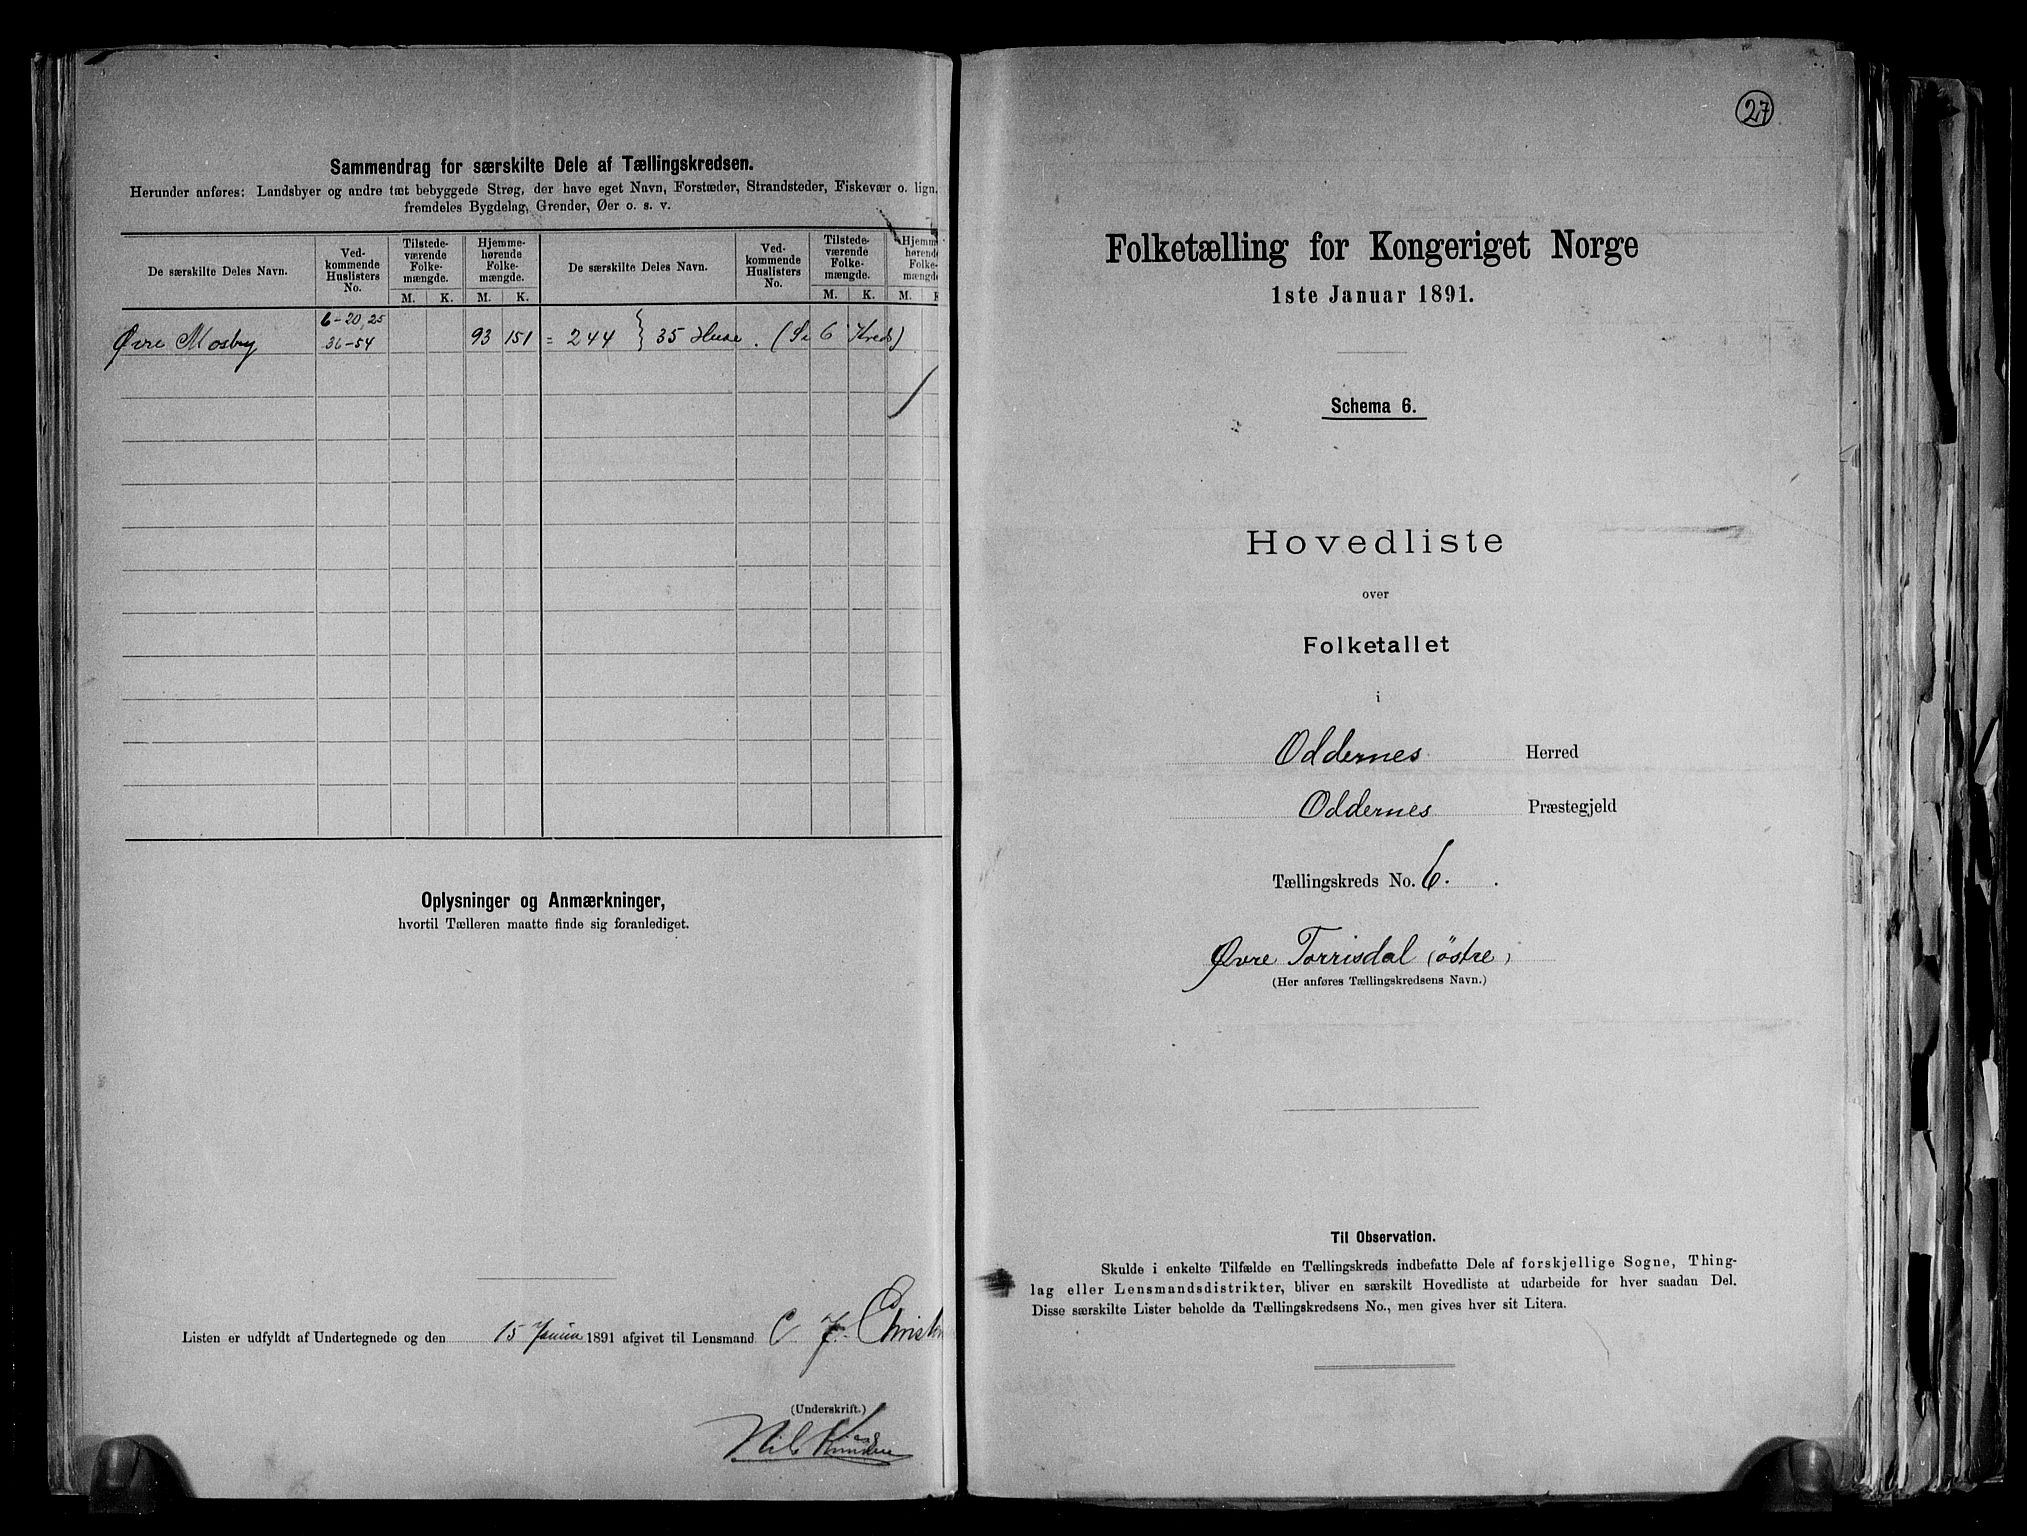 Sammendrag for særskilte Dele af Tællingskredsen.
Herunder anføres: Landsbyer og andre tæt bebyggede Strøg, der have eget Navn, Forstæder, Strandsteder, Fiskevær o. lign.
fremdeles Bygdelag, Grender, Øer o. s. v.
De særskilte Deles Navn. Ved-kommende Huslisters No. Tilstede-værende Folke-mængde. Hjemme-hørende Folke-mængde. De særskilte Deles Navn. Ved-kommende Huslisters No. Tilstede-værende Folke-mængde. Hjemme-hørende Folke-mængde
M. K. M. K. M. K. M. K
6-20, 25
Øvre Mosby 36-54 93 151 = 244 } 35 Huse. (Se 6 Kreds)
Oplysninger og Anmærkninger,
hvortil Tælleren maatte finde sig foranlediget.
Listen er udfyldt af Undertegnede og den 15 Januar 1891 afgivet til Lensmand C F. Christen
(Underskrift.)
Nils Knudsen
27
Folketælling for Kongeriget Norge
1ste Januar 1891.
Schema 6.
Hovedliste
over
Folketallet
i
Oddernes Herred
Oddernes Præstegjeld
Tællingskreds No. 6.
Øvre Torrisdal (østre)
(Her anføres Tællingskredsens Navn.)
Til Observation.
Skulde i enkelte Tilfælde en Tællingskreds indbefatte Dele af forskjellige Sogne, Thing-
lag eller Lensmandsdistrikter, bliver en særskilt Hovedliste at udarbeide for hver saadan Del.
Disse særskilte Lister beholde da Tællingskredsens No., men gives hver sit Litera.